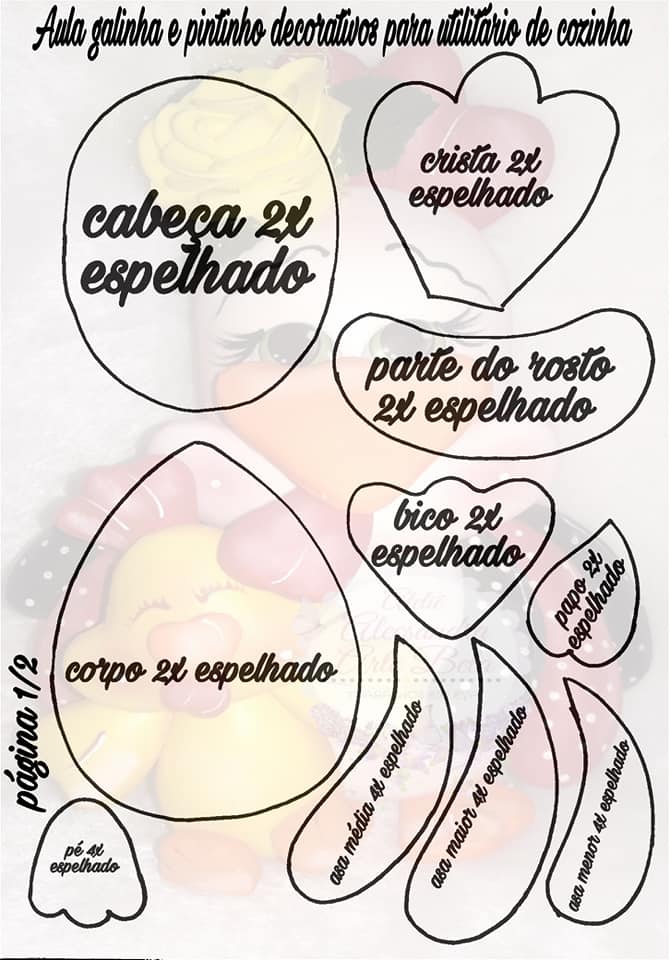 Aula galinha e pintinho decorativos para utilitário de cozinha
cabeça 2x
espelhado
crista 2x
espelhado
parte do rosto
2x espelhado
bico 2x
espelhado
papo 2x
espelhado
corpo 2x espelhado
página 1/2
pé 4x
espelhado
asa média 4x espelhado
asa maior 4x espelhado
asa menor 4x espelhado